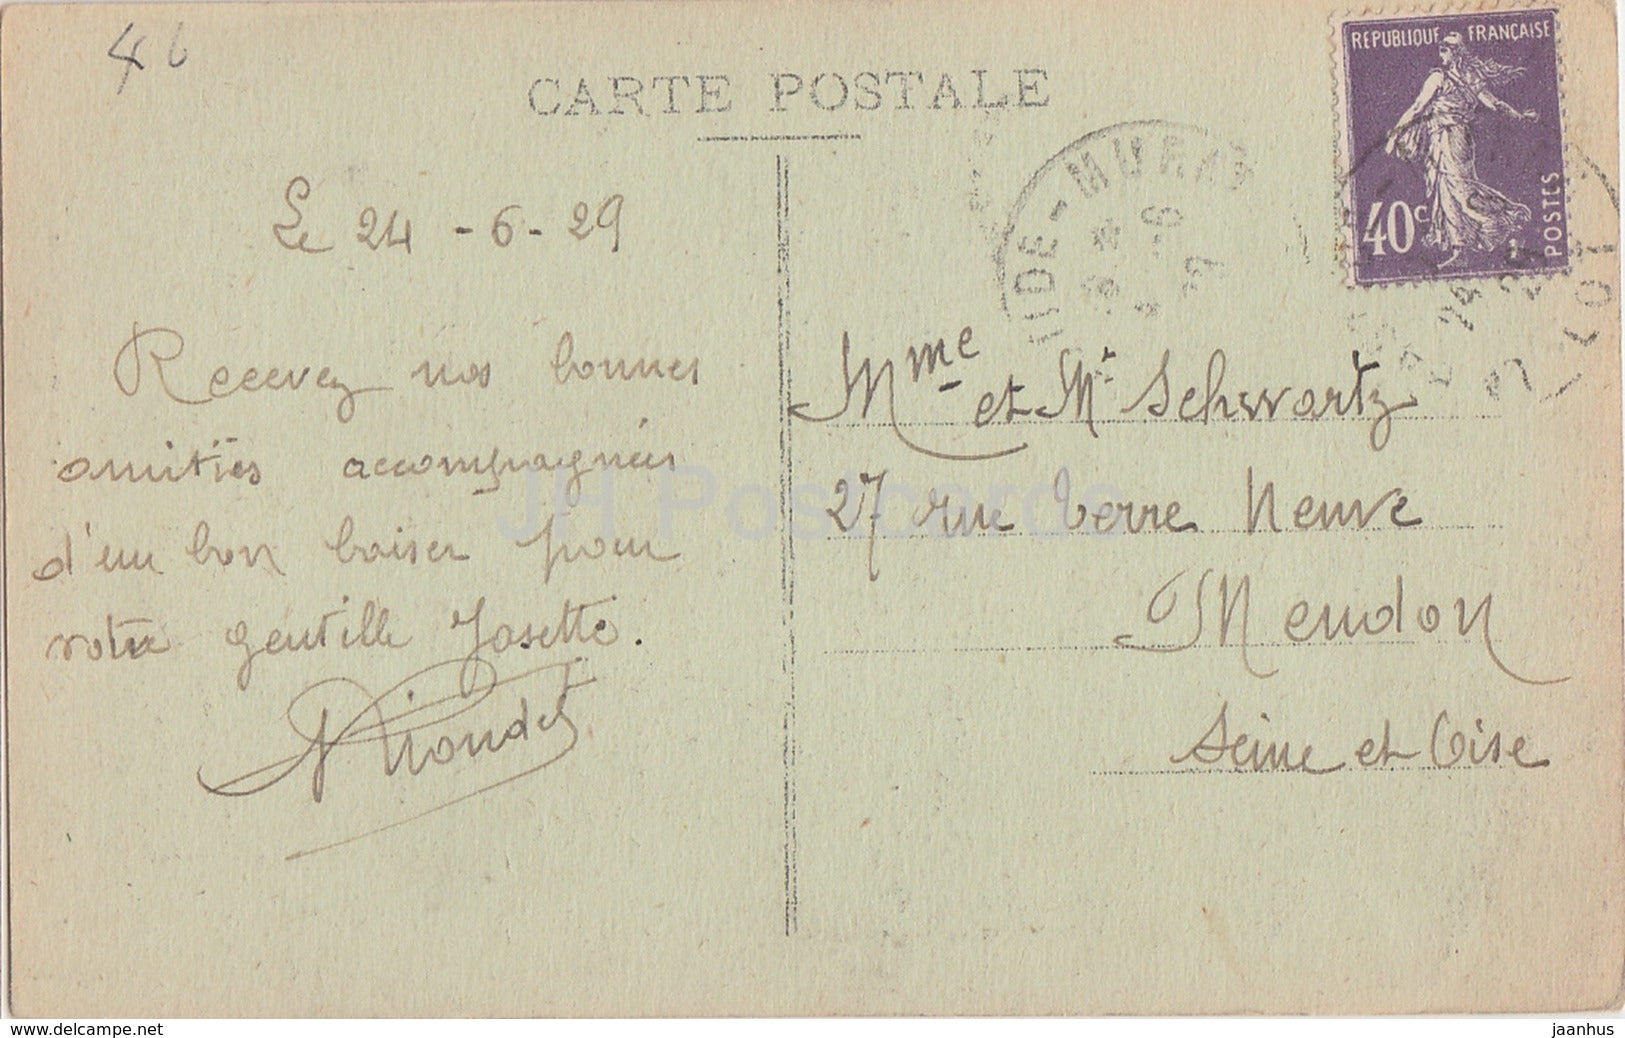 46
CARTE POSTALE
REPUBLIQUE FRANÇAISE
40c
POSTES
LOT
Le 24-6-29
Recevez nos bonnes
amitiés accompagnées
d'un bon baiser pour
votre gentille Josette.
Mme et Mr Schwartz
27 rue Terre Neuve
Meudon
Seine et Oise
JH Postcards
www.delcampe.net
jaanhus